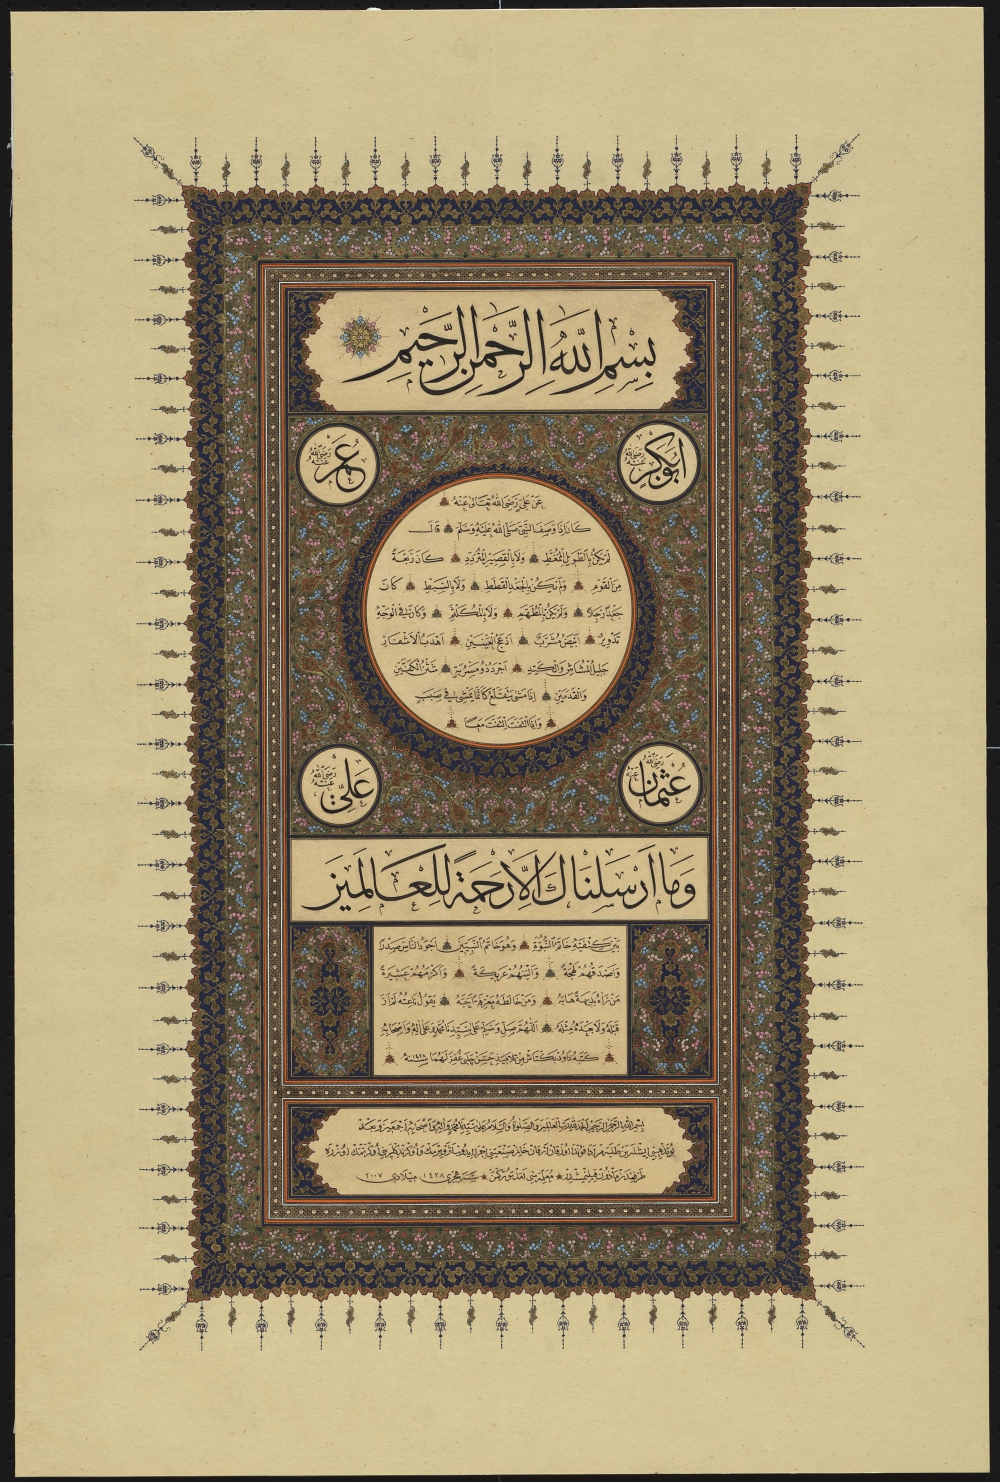 بِسْمِ اللّٰهِ الرَّحْمٰنِ الرَّحِيمِ
اَبُوبَكْرٍ رَضِيَ اللّٰهُ عَنْهُ
عُمَرُ رَضِيَ اللّٰهُ عَنْهُ
عَنْ عَلِيٍّ رَضِيَ اللّٰهُ تَعَالٰى عَنْهُ
كَانَ اِذَا وَصَفَ النَّبِيَّ صَلَّى اللّٰهُ عَلَيْهِ وَسَلَّمَ قَالَ
لَمْ يَكُنْ بِالطَّوِيلِ الْمُمَّغِطِ وَلَا بِالْقَصِيرِ الْمُتَرَدِّدِ كَانَ رَبْعَةً
مِنَ الْقَوْمِ وَلَمْ يَكُنْ بِالْجَعْدِ الْقَطَطِ وَلَا بِالسَّبِطِ كَانَ
جَعْدًا رَجِلًا وَلَمْ يَكُنْ بِالْمُطَهَّمِ وَلَا بِالْمُكَلْثَمِ وَكَانَ فِي الْوَجْهِ
تَدْوِيرٌ اَبْيَضُ مُشْرَبٌ اَدْعَجُ الْعَيْنَيْنِ اَهْدَبُ الْاَشْفَارِ
جَلِيلُ الْمُشَاشِ وَالْكَتِدِ اَجْرَدُ ذُو مَسْرُبَةٍ شَثْنُ الْكَفَّيْنِ
وَالْقَدَمَيْنِ اِذَا مَشٰى يَتَقَلَّعُ كَاَنَّمَا يَمْشِي فِي صَبَبٍ
وَاِذَا الْتَفَتَ الْتَفَتَ مَعًا
عُثْمَانُ رَضِيَ اللّٰهُ عَنْهُ
عَلِيٌّ رَضِيَ اللّٰهُ عَنْهُ
وَمَا اَرْسَلْنَاكَ اِلَّا رَحْمَةً لِلْعَالَمِينَ
بَيْنَ كَتِفَيْهِ خَاتَمُ النُّبُوَّةِ وَهُوَ خَاتَمُ النَّبِيِّينَ اَجْوَدُ النَّاسِ صَدْرًا
وَاَصْدَقُهُمْ لَهْجَةً وَاَلْيَنُهُمْ عَرِيكَةً وَاَكْرَمُهُمْ عَشِيرَةً
مَنْ رَاٰهُ بَدِيهَةً هَابَهُ وَمَنْ خَالَطَهُ مَعْرِفَةً اَحَبَّهُ يَقُولُ نَاعِتُهُ لَمْ اَرَ
قَبْلَهُ وَلَا بَعْدَهُ مِثْلَهُ اَللّٰهُمَّ صَلِّ وَسَلِّمْ عَلٰى سَيِّدِنَا مُحَمَّدٍ وَعَلٰى اٰلِهِ وَاَصْحَابِهِ
كَتَبَهُ دَاوُدْ بَكْتَاشْ مِنْ تَلَامِيذِ حَسَنْ چَلَبِي غُفِرَ لَهُمَا سنة
بِسْمِ اللّٰهِ الرَّحْمٰنِ الرَّحِيمِ الْحَمْدُ لِلّٰهِ رَبِّ الْعَالَمِينَ وَالصَّلٰوةُ وَالسَّلَامُ عَلٰى سَيِّدِنَا مُحَمَّدٍ وَاٰلِهِ وَاَصْحَابِهِ اَجْمَعِينَ وَبَعْدُ
سنه هجرى ١٤٢٨ ميلادى ٢٠٠٧